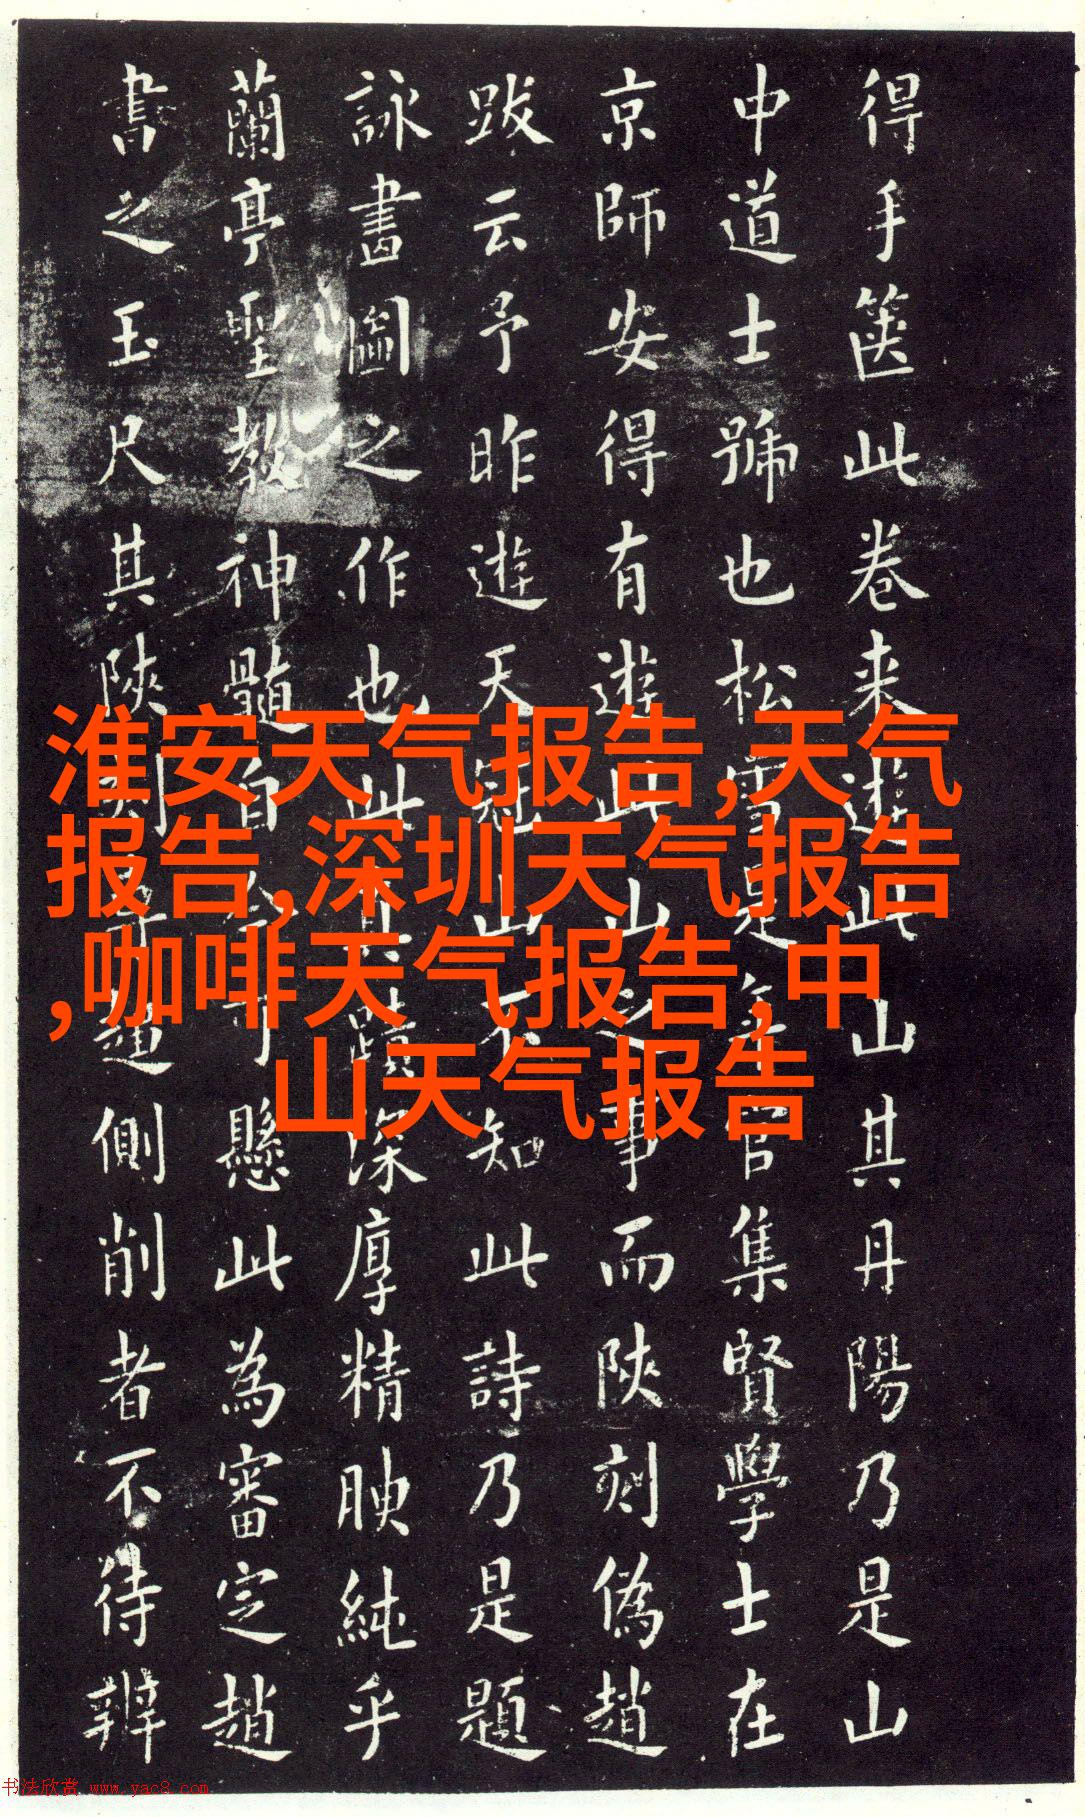 得手箧此卷来遊此山其丹陽乃是山
中道士號也松雪是年官集賢學士在
京師安得有遊此山之事而陝刻偽趙
跋云予昨遊天冠山不知此詩乃是題
詠畫圖之作也此其蹟深厚精腴純乎
蘭亭聖教神髓百年可懸此為審定趙
書之玉尺其陝刻欹側削者不待辨
淮安天气报告,天气
报告,深圳天气报告
,咖啡天气报告,中
山天气报告
书法欣赏 www.yac8.com